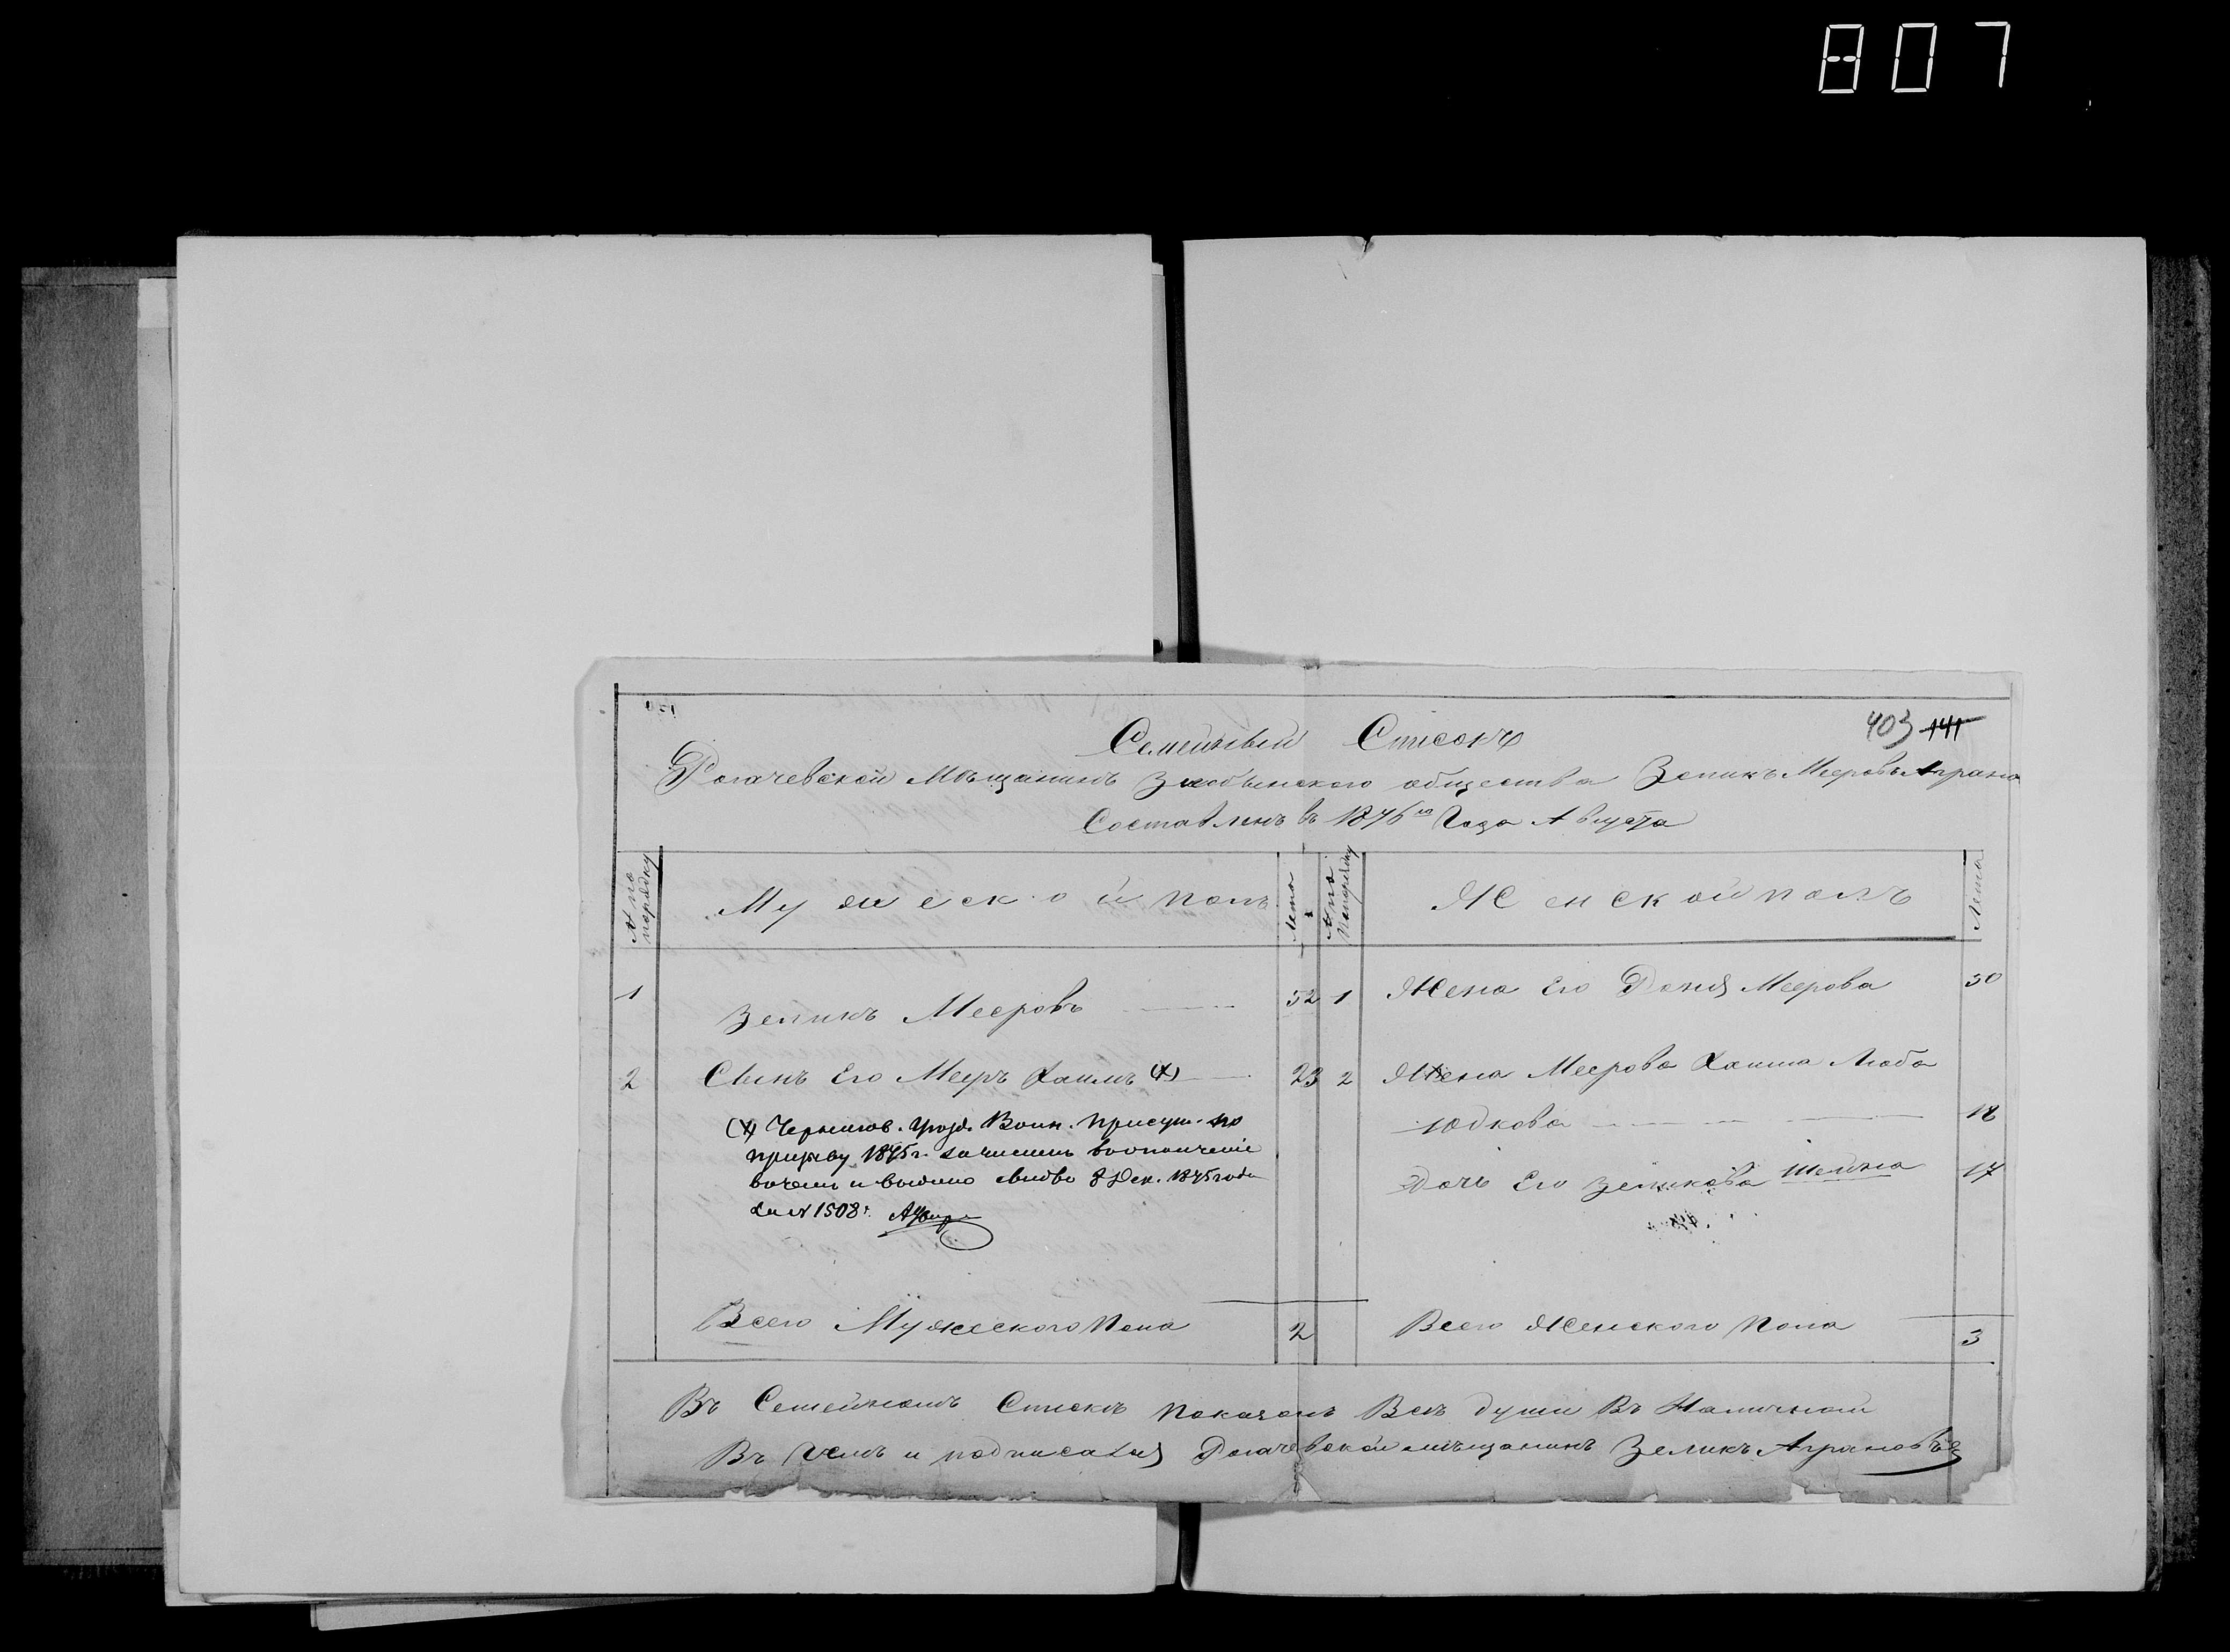 807
403 141
Семейный Списокъ
Рогачевской Мѣщанинъ Злобынского общества Зеликъ Мееровъ Аграно
Составленъ въ 1876го Года Августа
№ по порядку
Мужеской полъ
Лета
№ по порядку
Женской полъ
Лета
1 Зеликъ Мееровъ 52 1 Жена Его Доня Меерова 50
2 Сынъ Его Мееръ Хаимъ (X) 23 2 Жена Меерова Хашиа Люба
Юдкова 18
(X) Чернигов. Уезд. Воин. Присут. по
призыву 1875 г. зачисленъ въ ополченіе
выдано свидѣ 8 Дек. 1875 года
за № 1508
Дочь Его Зеликова Шейна 17
Всего Мужеского Пола 2 Всего Женского Пола 3
Въ Семейномъ Спискѣ показанъ Всѣ души Въ Наличной
Въ Чемъ и подписался Рогачевской мѣщанинъ Зеликъ Аграновъ